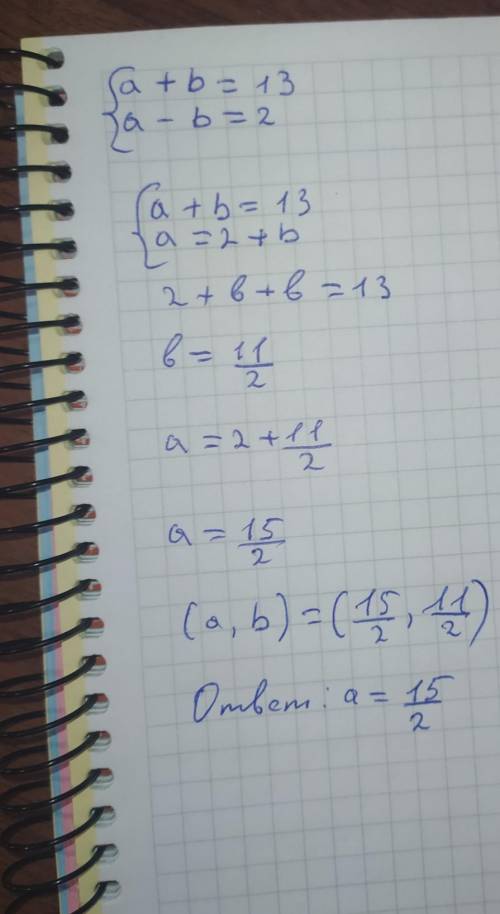 {a + b = 13
{a - b = 2
{a + b = 13
{a = 2 + b
2 + в + в = 13
в = 11/2
a = 2 + 11/2
a = 15/2
(a, b) = (15/2, 11/2)
Ответ: a = 15/2